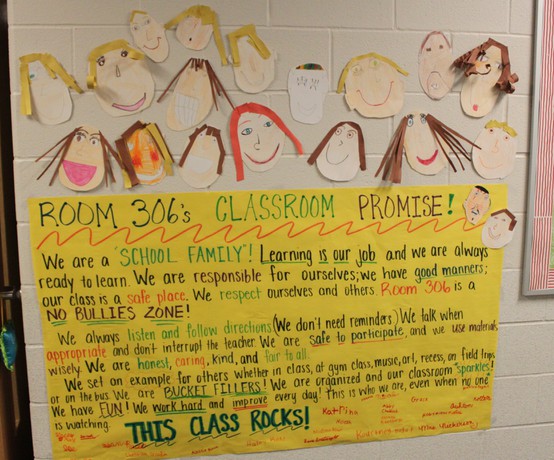 ROOM 306's CLASSROOM PROMISE!
We are a "SCHOOL FAMILY"! Learning is our job and we are always
ready to learn. We are responsible for ourselves; we have good manners;
our class is a safe place. We respect ourselves and others. Room 306 is a
NO BULLIES ZONE!
We always listen and follow directions (We don't need reminders.) We talk when
appropriate and don't interrupt the teacher. We are safe to participate, and we use materials
wisely. We are honest, caring, kind, and fair to all.
We set an example for others whether in class, at gym class, music, art, recess, on field trips
or on the bus. We are BUCKET FILLERS! We are organized and our classroom "sparkles!"
We have FUN! We work hard and improve every day! This is who we are, even when no one
is watching.
THIS CLASS ROCKS!
Grace